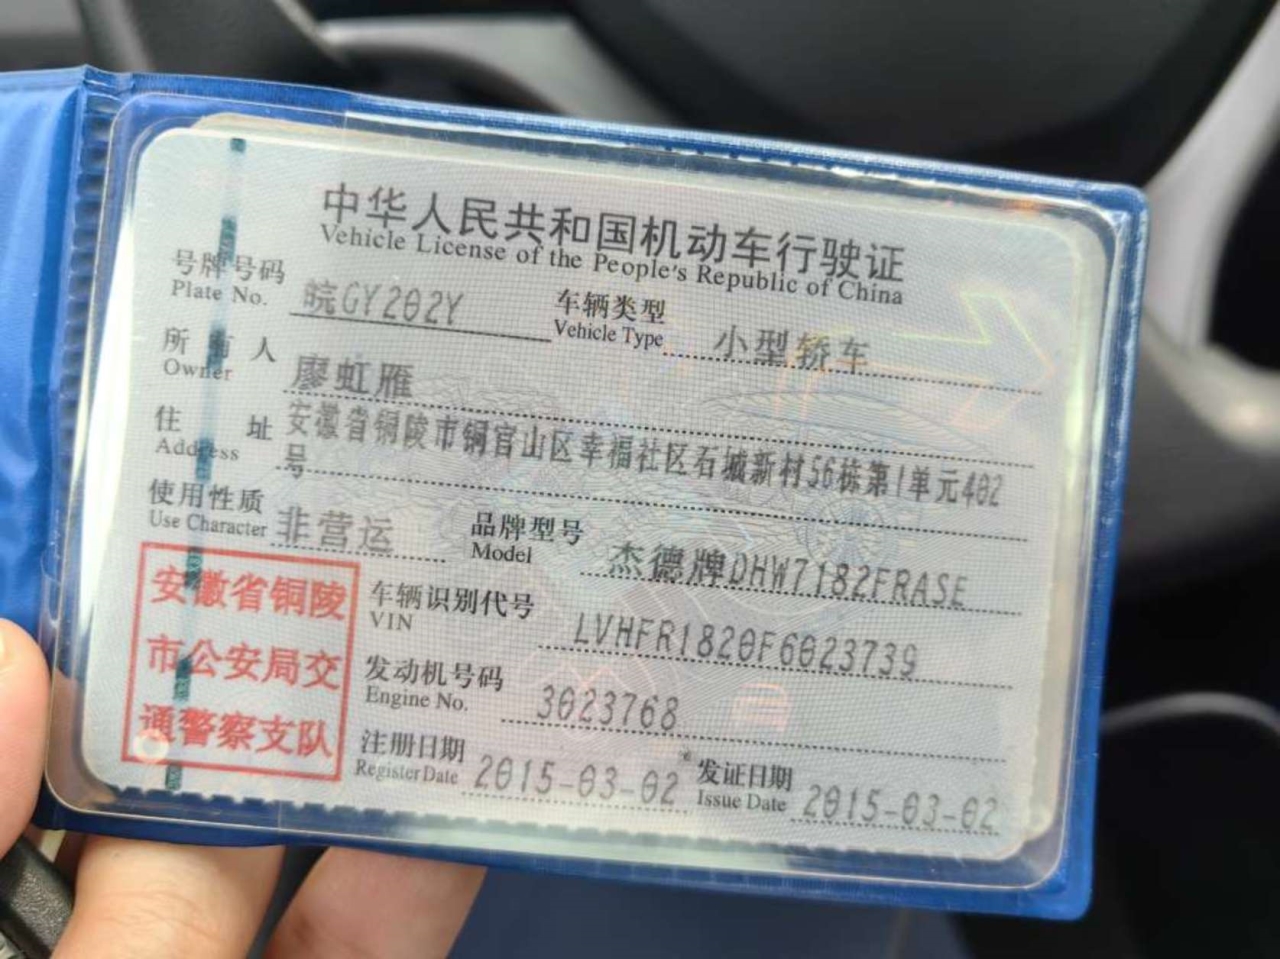 中华人民共和国机动车行驶证
Vehicle License of the People's Republic of China
号牌号码 皖GY202Y 车辆类型 小型轿车
Plate No. Vehicle Type
所有人 廖虹雁
Owner
住址 安徽省铜陵市铜官山区幸福社区石城新村56栋第1单元402
Address 号
使用性质 非营运 品牌型号 杰德牌DHW7182FRASE
Use Character Model
安徽省铜陵
市公安局交
通警察支队
车辆识别代号 LVHFR1820F6023739
VIN
发动机号码 3023768
Engine No.
注册日期 2015-03-02 发证日期 2015-03-02
Register Date Issue Date